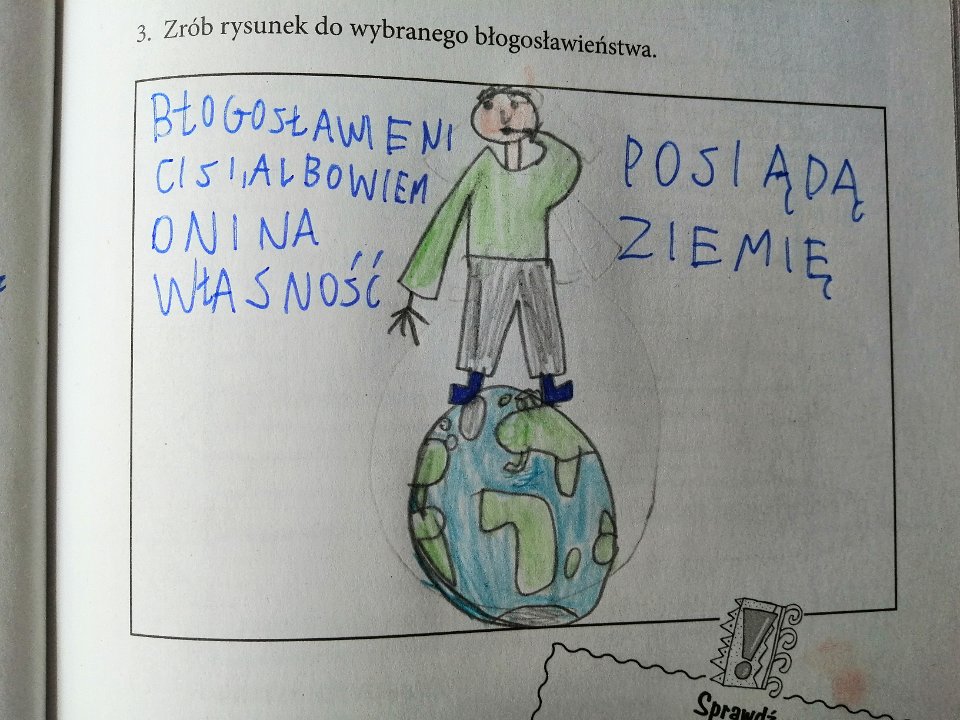 3. Zrób rysunek do wybranego błogosławieństwa.
BŁOGOSŁAWIENI
CISI, ALBOWIEM
ONI NA
WŁASNOŚĆ
POSIĄDĄ
ZIEMIĘ
Sprawdź